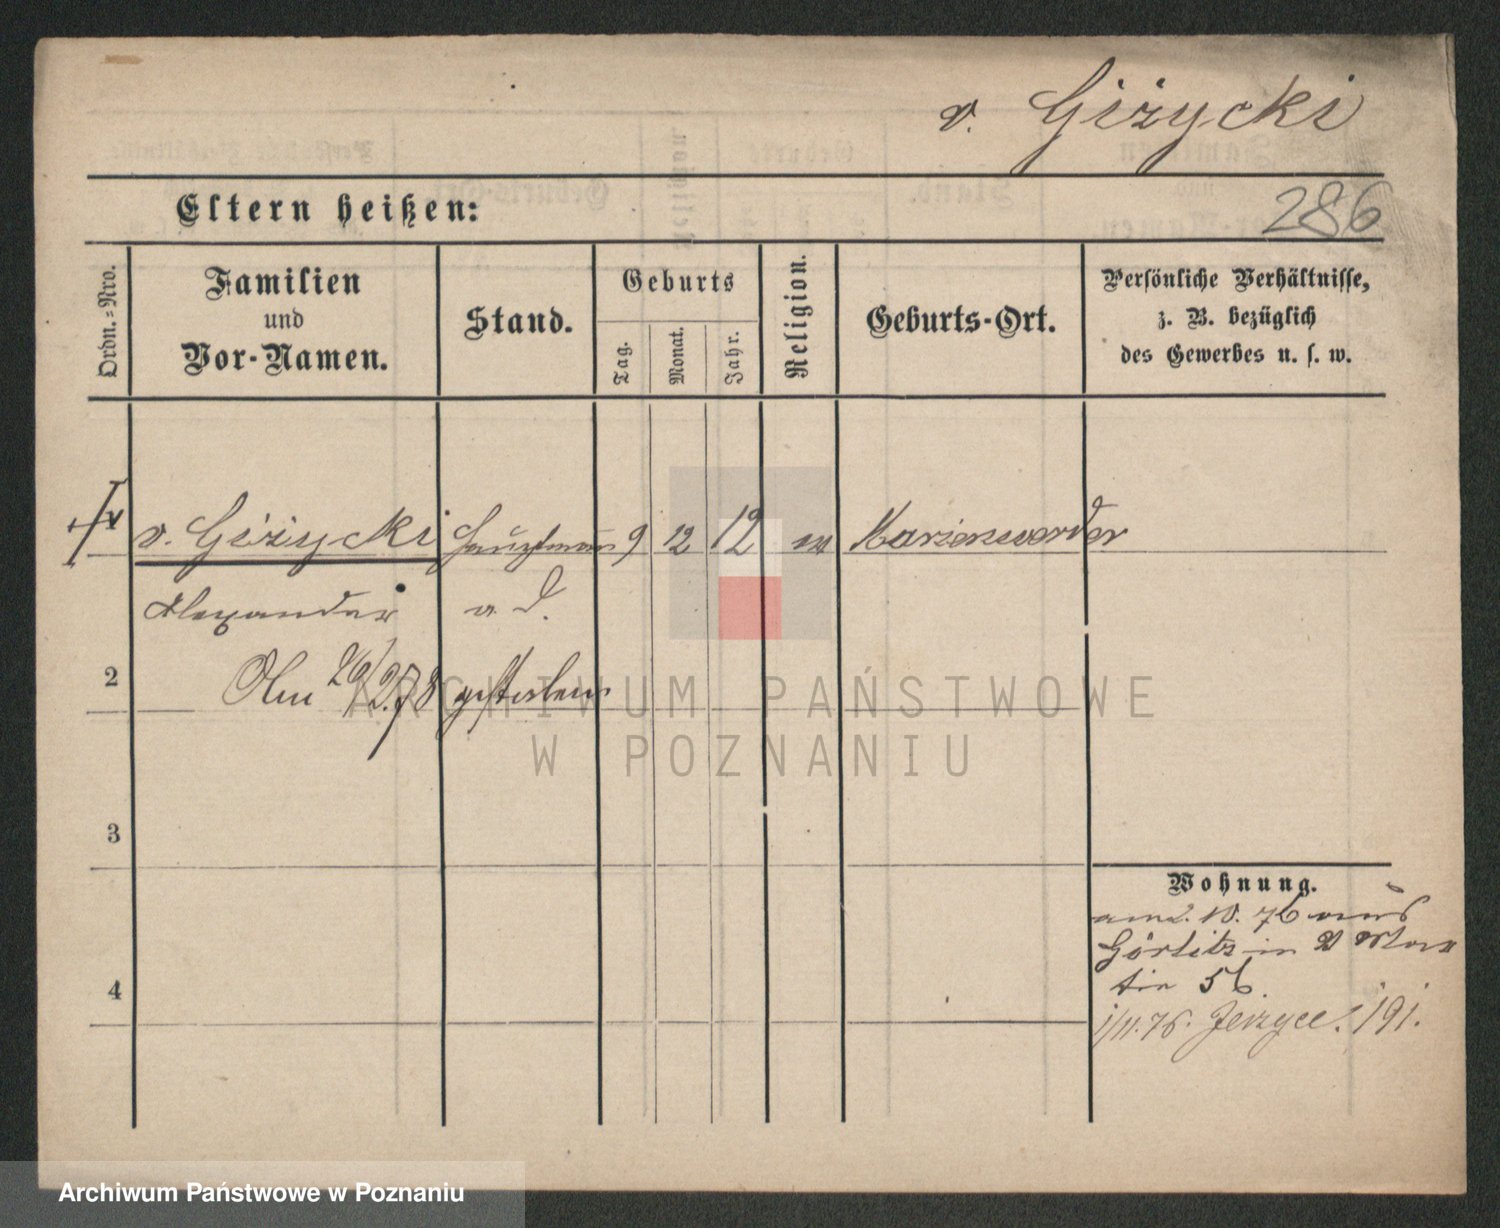 v. Giżycki
286
Eltern heißen:
Ordn.=Nro.
Familien
und
Vor-Namen.
Stand.
Geburts
Tag.
Monat.
Jahr.
Religion.
Geburts-Ort.
Persönliche Verhältnisse,
z. B. bezüglich
des Gewerbes u. s. w.
1 v. Giżycki Hauptmann 9 12 12 ev Marienwerder
Alexander a. D.
2 Am 26/2.78 gestorben
3
4
Wohnung.
am 2. 10. 76 aus
Görlitz in St Mar
tin 56.
1/11.76. Jerzyce. 191.
ARCHIWUM PAŃSTWOWE
W POZNANIU
Archiwum Państwowe w Poznaniu